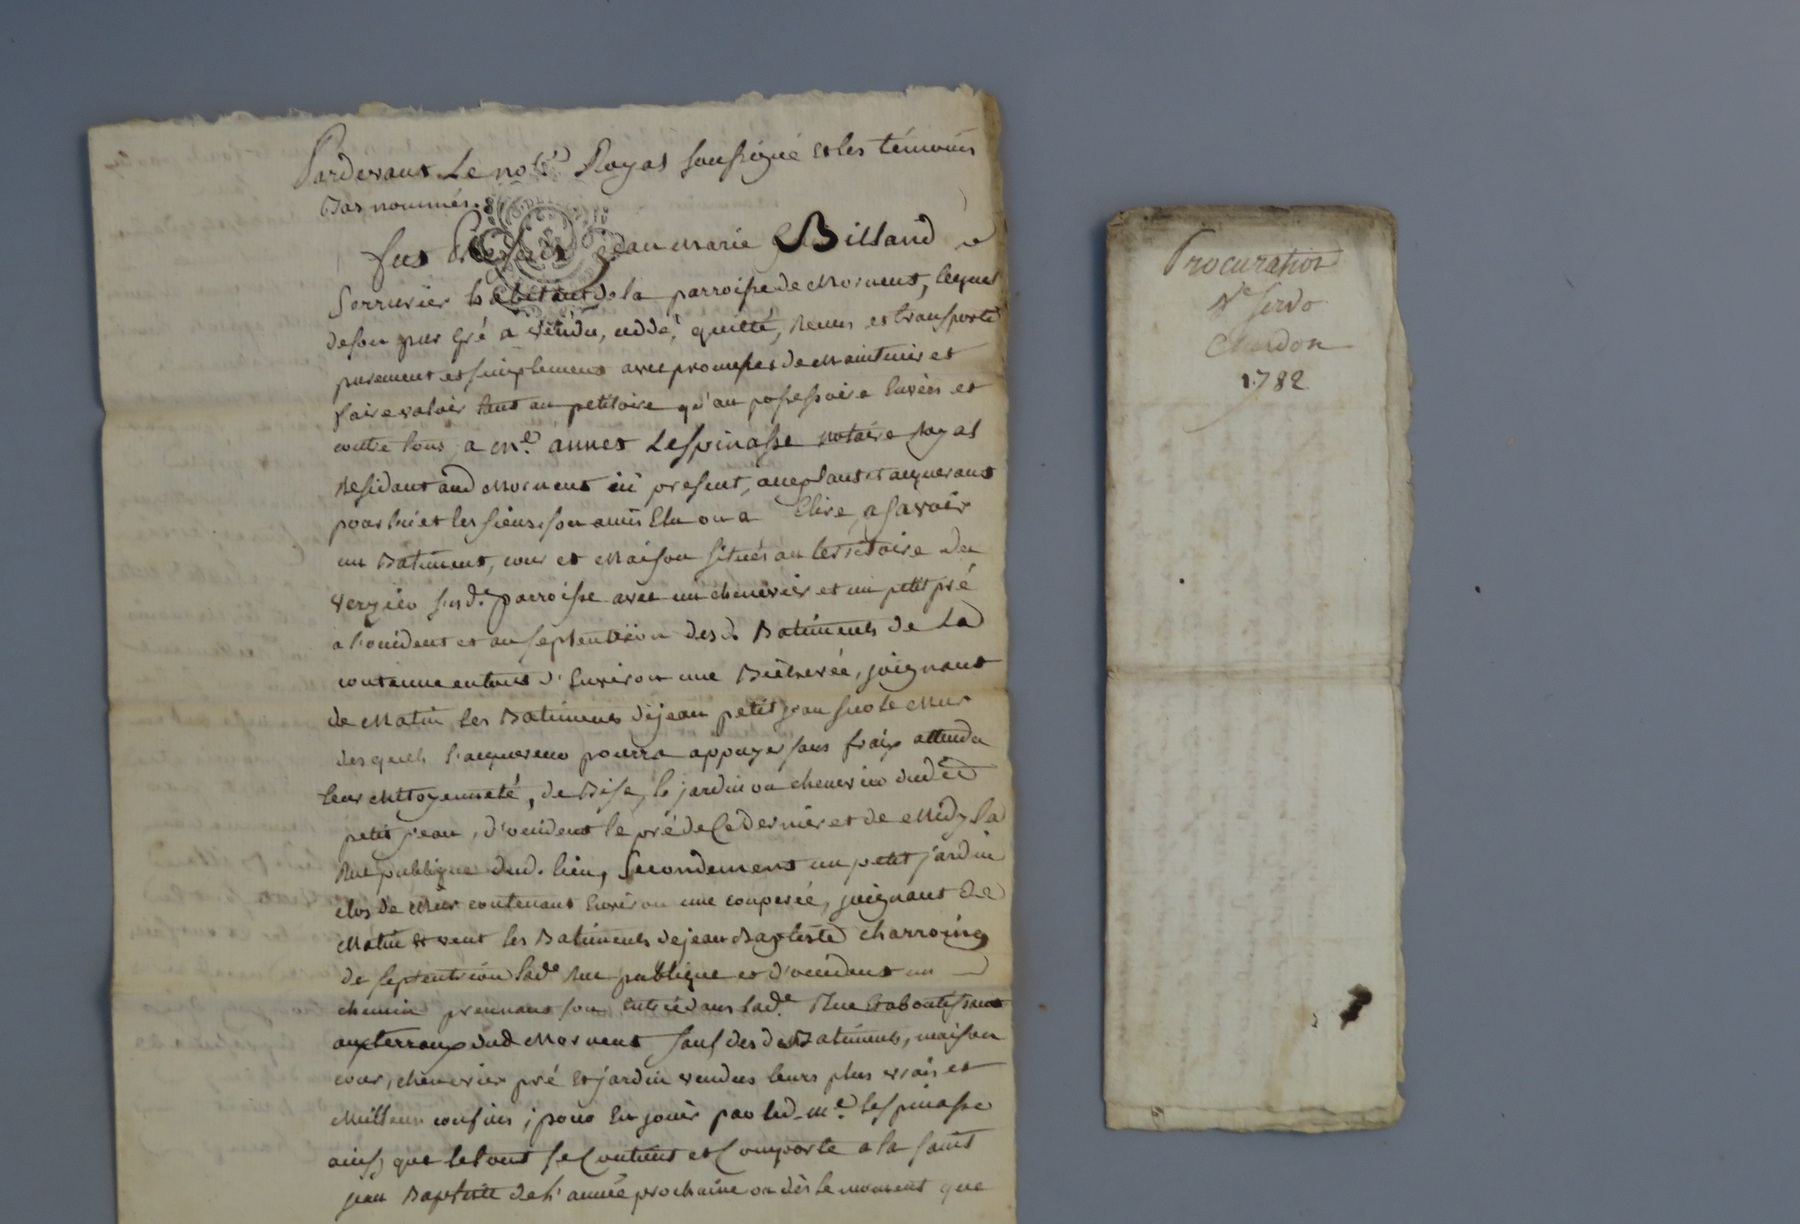 Pardevant Le no.re Royal soussigné et les témoins
Bas nommés
fut Présent jean Marie Billand
serrurier habitant de la parroisse de Mornent, lequel
de son pur gré a vendu, cédé, quitté, remis et transporté
purement et simplement avec promesses de Maintenir et
faire valoir tant au petitoire qu'au possessoire Envers et
contre tous, a M.e annet Lespinasse notaire Royal
Résidant aud Mornent ici présent, acceptant et acquerant
pour lui et les siens, son amis Elu ou a Elire, a savoir
un Batiment, cour et Maison situés au territoire du
Verzieu sud. parroisse avec un chenevier et un petit pré
a l'occident et au septentrion desd. Batiments de La
contenue en tout d'Environ une Bicherée, joignant
de Matin les Batiments de jean petit jean sur le Mur
desquels l'acquereur pourra appuyer sans fraix attendu
leur Mitoyenneté, de Bise, le jardin ou chenevier dudit
petit jean, d'occident le pré de Ce dernier et de Midy la
Rue publique dud. lieu, Secondement un petit jardin
clos de Mur contenant Environ une couperée, joignant de
Matin et vent les Batiments de jean Baptiste charroing
de septentrion lad.e Rue publique et d'occident un
chemin prennant son Entrée dans lad.e Rue Et aboutissant
aux terraux dud Mornent sauf desd Batiments, maison
cour, chenevier pré Et jardin vendus leurs plus vrais et
Meilleurs confins, pour En jouir par led. M.e Lespinasse
ainsi que le tout se Contient et Comporte a la saint
jean Baptiste de l'année prochaine ou dès le moment que
Procuration
1782